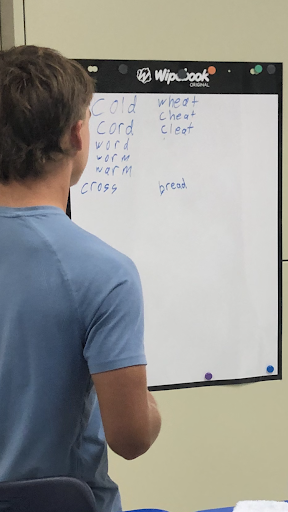 Wipebook
ORIGINAL
Cold
Cord
word
worm
warm
cross
wheat
cheat
cleat
bread